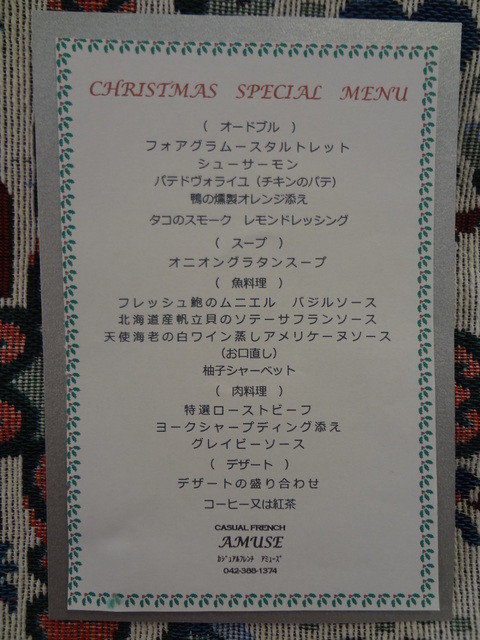 CHRISTMAS SPECIAL MENU
( オードブル )
フォアグラムースタルトレット
シューサーモン
パテドヴォライユ(チキンのパテ)
鴨の燻製オレンジ添え
タコのスモーク レモンドレッシング
( スープ )
オニオングラタンスープ
( 魚料理 )
フレッシュ鮑のムニエル バジルソース
北海道産帆立貝のソテーサフランソース
天使海老の白ワイン蒸しアメリケーヌソース
(お口直し)
柚子シャーベット
( 肉料理 )
特選ローストビーフ
ヨークシャープディング添え
グレイビーソース
( デザート )
デザートの盛り合わせ
コーヒー又は紅茶
CASUAL FRENCH
AMUSE
ｶｼﾞｭｱﾙﾌﾚﾝﾁ ｱﾐｭｰｽﾞ
042-388-1374